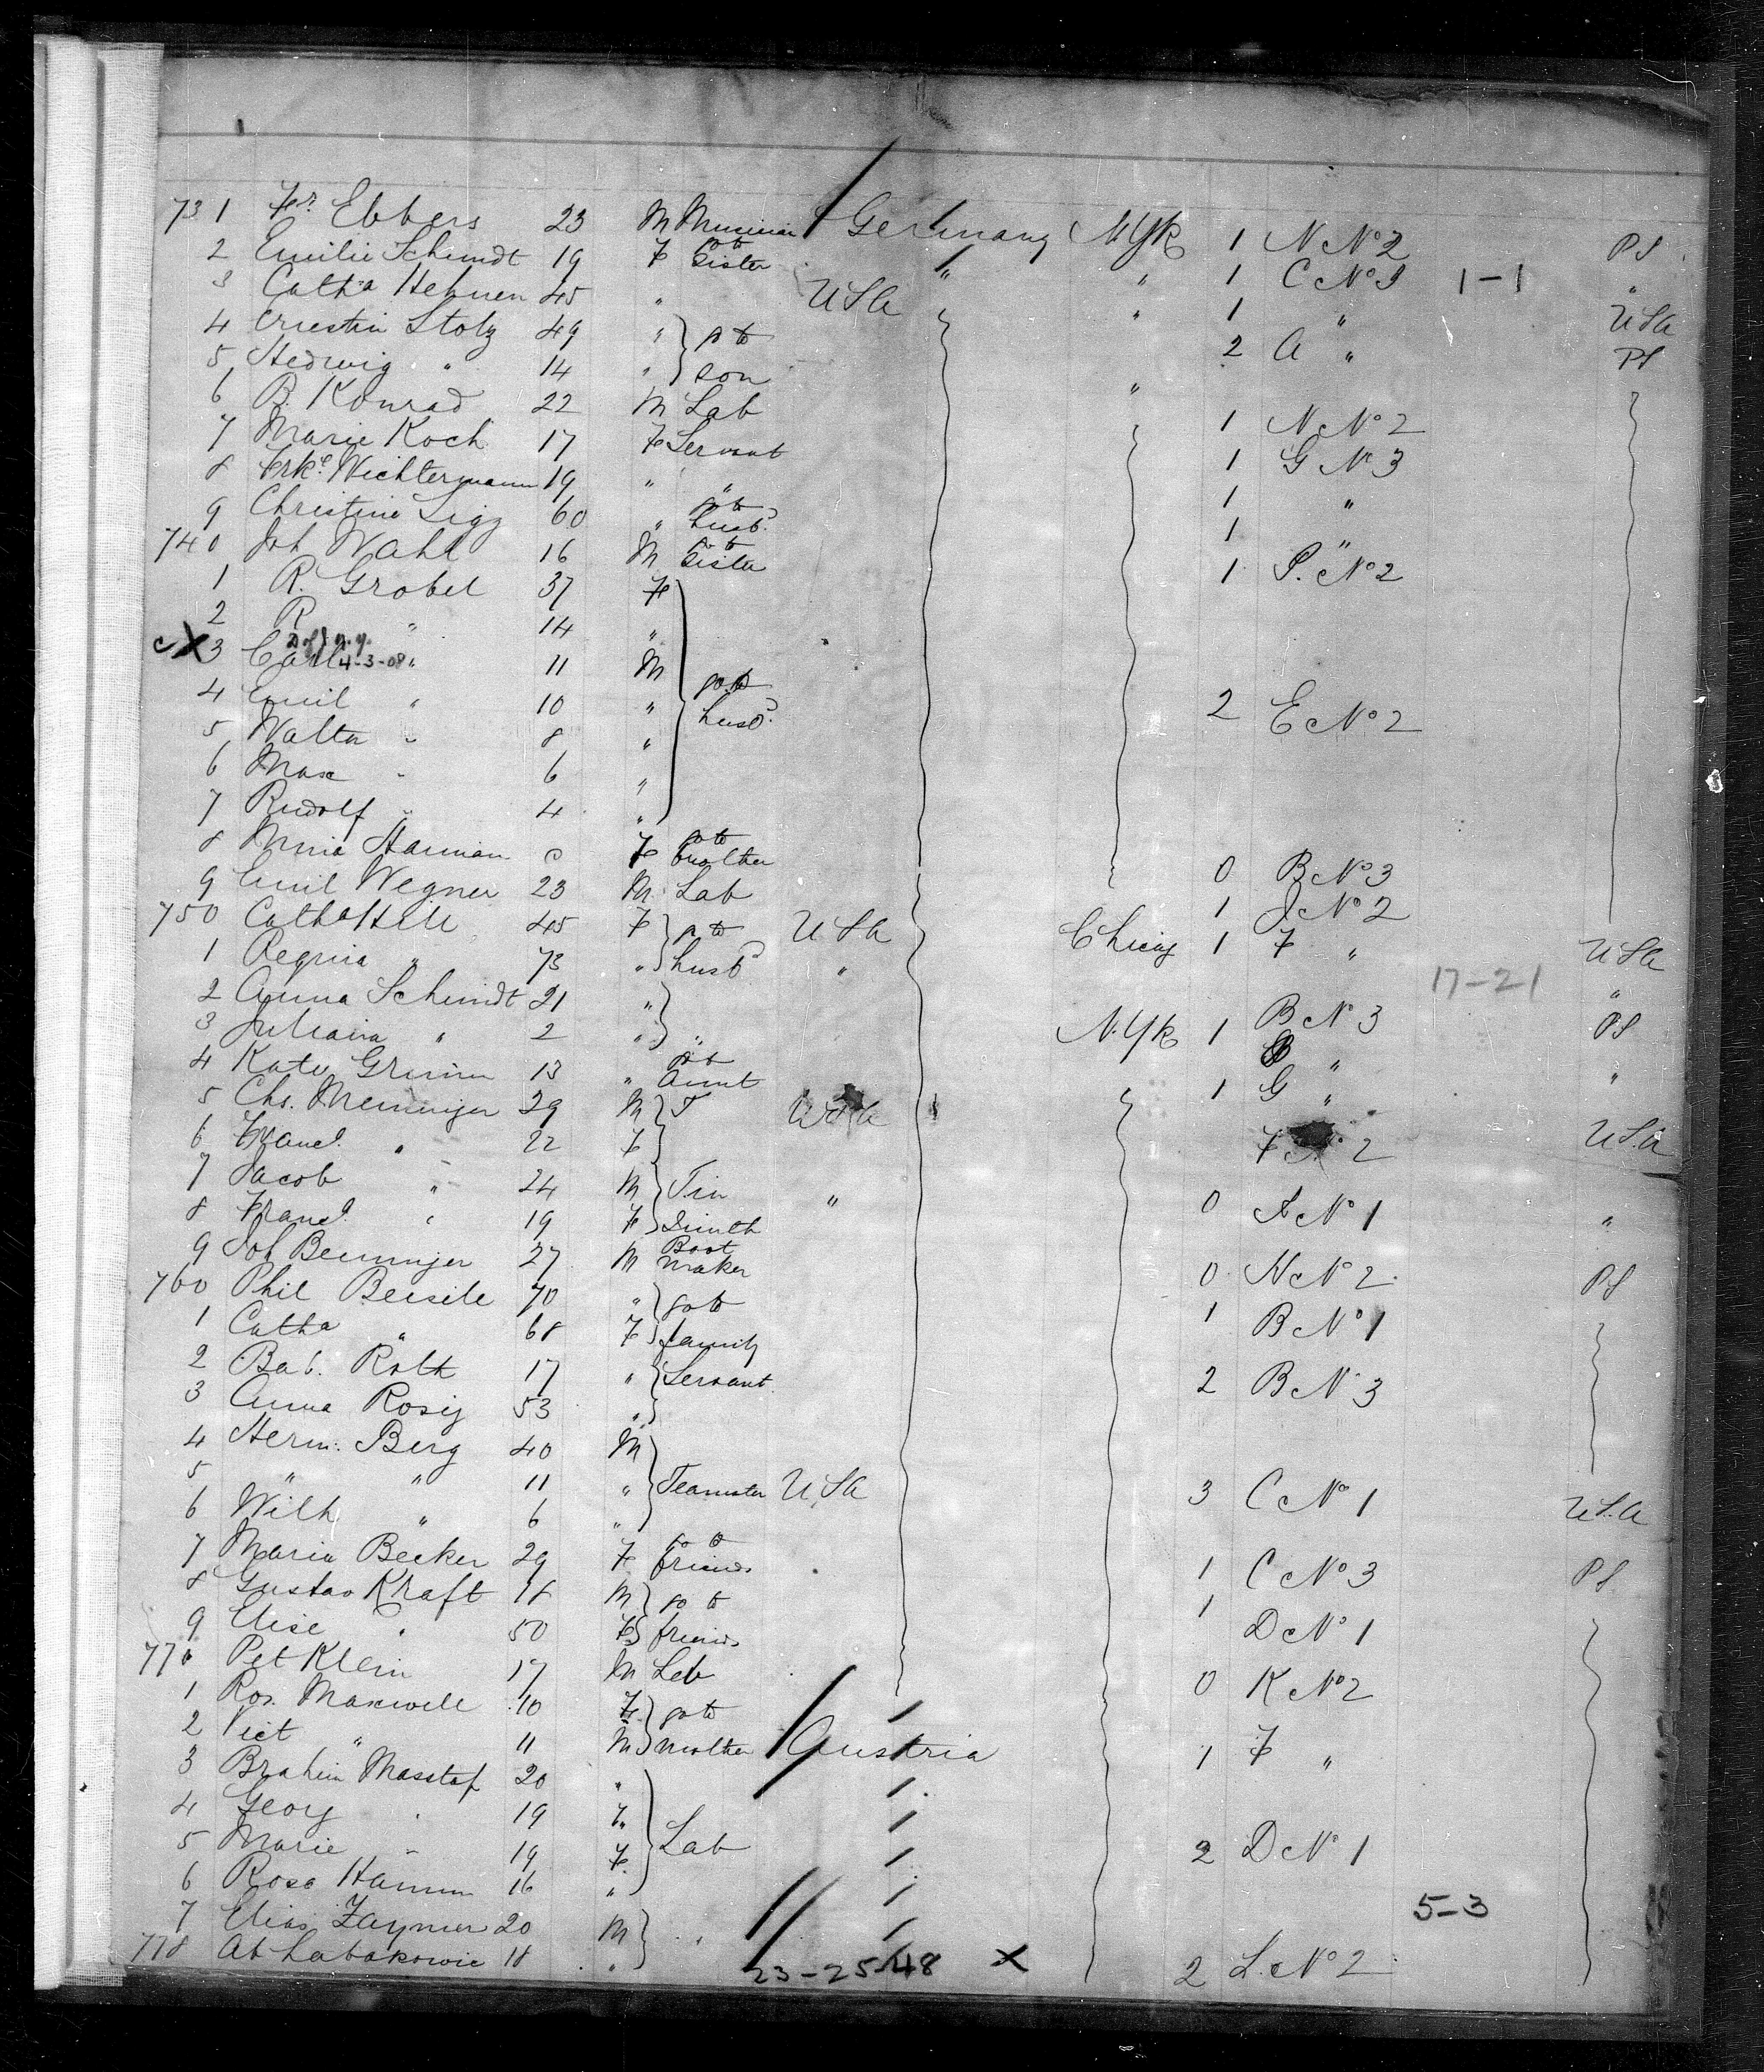 731 Fr. Ebbers 23 M Musician Germany N.Yk 1 N No 2 PS
2 Emilie Schmidt 19 F go to Sister " " 1 C No 3 1-1 "
3 Catha Hehnen 45 " USA " " 1 " USA
4 Ernestin Stolz 49 " go to 2 A " PS
5 Hedwig " 14 " son
6 B. Konrad 22 M Lab " 1 N No 2
7 Marie Koch 17 F Servant 1 G No 3
8 Frke Wichtermann 19 " " 1 "
9 Christine Sigg 60 " go to husbd 1 "
740 Joh Wahl 16 M go to Sister 1 P. No 2
1 R. Grobel 37 F
2 R " 14 "
cX3 Carl 4-3-08 " 11 M
4 Emil " 10 " go to husbd 2 E No 2
5 Walter " 8 "
6 Max " 6 "
7 Rudolf " 4 "
8 Harman F go to brother 0 B No 3
9 Emil Wegner 23 M Lab 1 J No 2
750 Catha Hill 45 F go to USA Chicag 1 F " USA
1 Regina " 73 " husbd " 17-21 "
2 Anna Schmidt 21 " B No 3
3 Juliana " 2 " " N.Yk 1 " PS
4 Kate Grimm 13 " go to Aunt 1 G " "
5 Chs. Menninger 29 M T USA
6 Franc. " 22 F F No 2 USA
7 Jacob " 24 M Tin "
8 Franc. " 19 F Smith 0 A No 1 "
9 Joh Benninger 27 M Boot maker 0 H No 2 PS
760 Phil Beisele 70 " go to
1 Catha " 68 F family 1 B No 1
2 Bab. Roth 17 " Servant 2 B No 3
3 Anna Rosig 53 "
4 Herm. Berg 40 M
5 " " 11 " Teamster USA 3 C No 1 USA
6 Wilh " 6 "
7 Maria Becker 29 F go to friends 1 C No 3 PS
8 Gustav Kraft 18 M go to 1
9 Elise " 50 F friends D No 1
770 Pet Klein 17 M Lab 0 K No 2
1 Ros. Maxwell 10 F go to
2 Vict " 11 M mother Austria 1 F "
3 Brahim Masstaf 20 "
4 Georg " 19
5 Marie " 19 F Lab 2 D No 1
6 Rosa Hamm 16 "
7 Elias Zaymer 20 M 5-3
778 Ab Labakowic 18 " 23-25-48 X 2 L. No 2